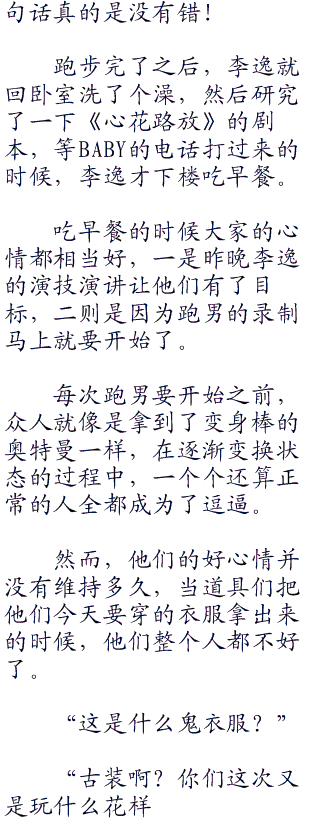 句话真的是没有错！
跑步完了之后，李逸就
回卧室洗了个澡，然后研究
了一下《心花路放》的剧
本，等BABY的电话打过来的
时候，李逸才下楼吃早餐。
吃早餐的时候大家的心
情都相当好，一是昨晚李逸
的演技演讲让他们有了目
标，二则是因为跑男的录制
马上就要开始了。
每次跑男要开始之前，
众人就像是拿到了变身棒的
奥特曼一样，在逐渐变换状
态的过程中，一个个还算正
常的人全都成为了逗逼。
然而，他们的好心情并
没有维持多久，当道具们把
他们今天要穿的衣服拿出来
的时候，他们整个人都不好
了。
“这是什么鬼衣服？”
“古装啊？你们这次又
是玩什么花样